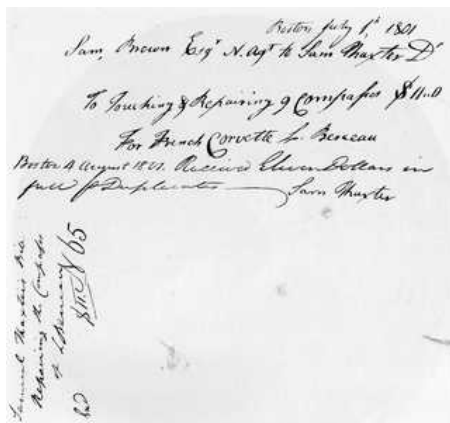 Boston July 1st 1801
Sam. Brown Esqr N. Agt to Sam Thaxter Dr
To Touching & Repairing 9 Compasses $11.0
For French Corvette Le Berceau
Boston 4 August 1801. Received Eleven Dollars in
full for Duplicates — Sam Thaxter
Samuel Thaxters Bill
Repairing the Compasses
of LBerceau
$11.0
65